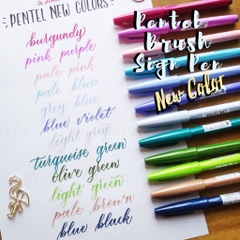 PENTEL NEW COLORS
burgundy
pink purple
pale pink
pale blue
grey blue
blue violet
light grey
turquoise green
olive green
light green
pale brown
blue black
Pentel
Brush
Sign Pen
New Color